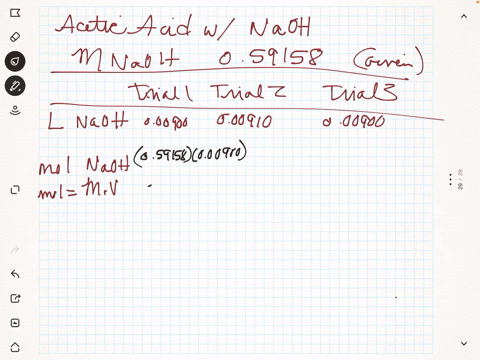 Acetic Acid w/ NaOH
M NaOH 0.59158 (Given)
Trial 1 Trial 2 Trial 3
L NaOH 0.00900 0.00910 0.00900
mol NaOH (0.59158)(0.00910)
mol = M.V
29 / 29